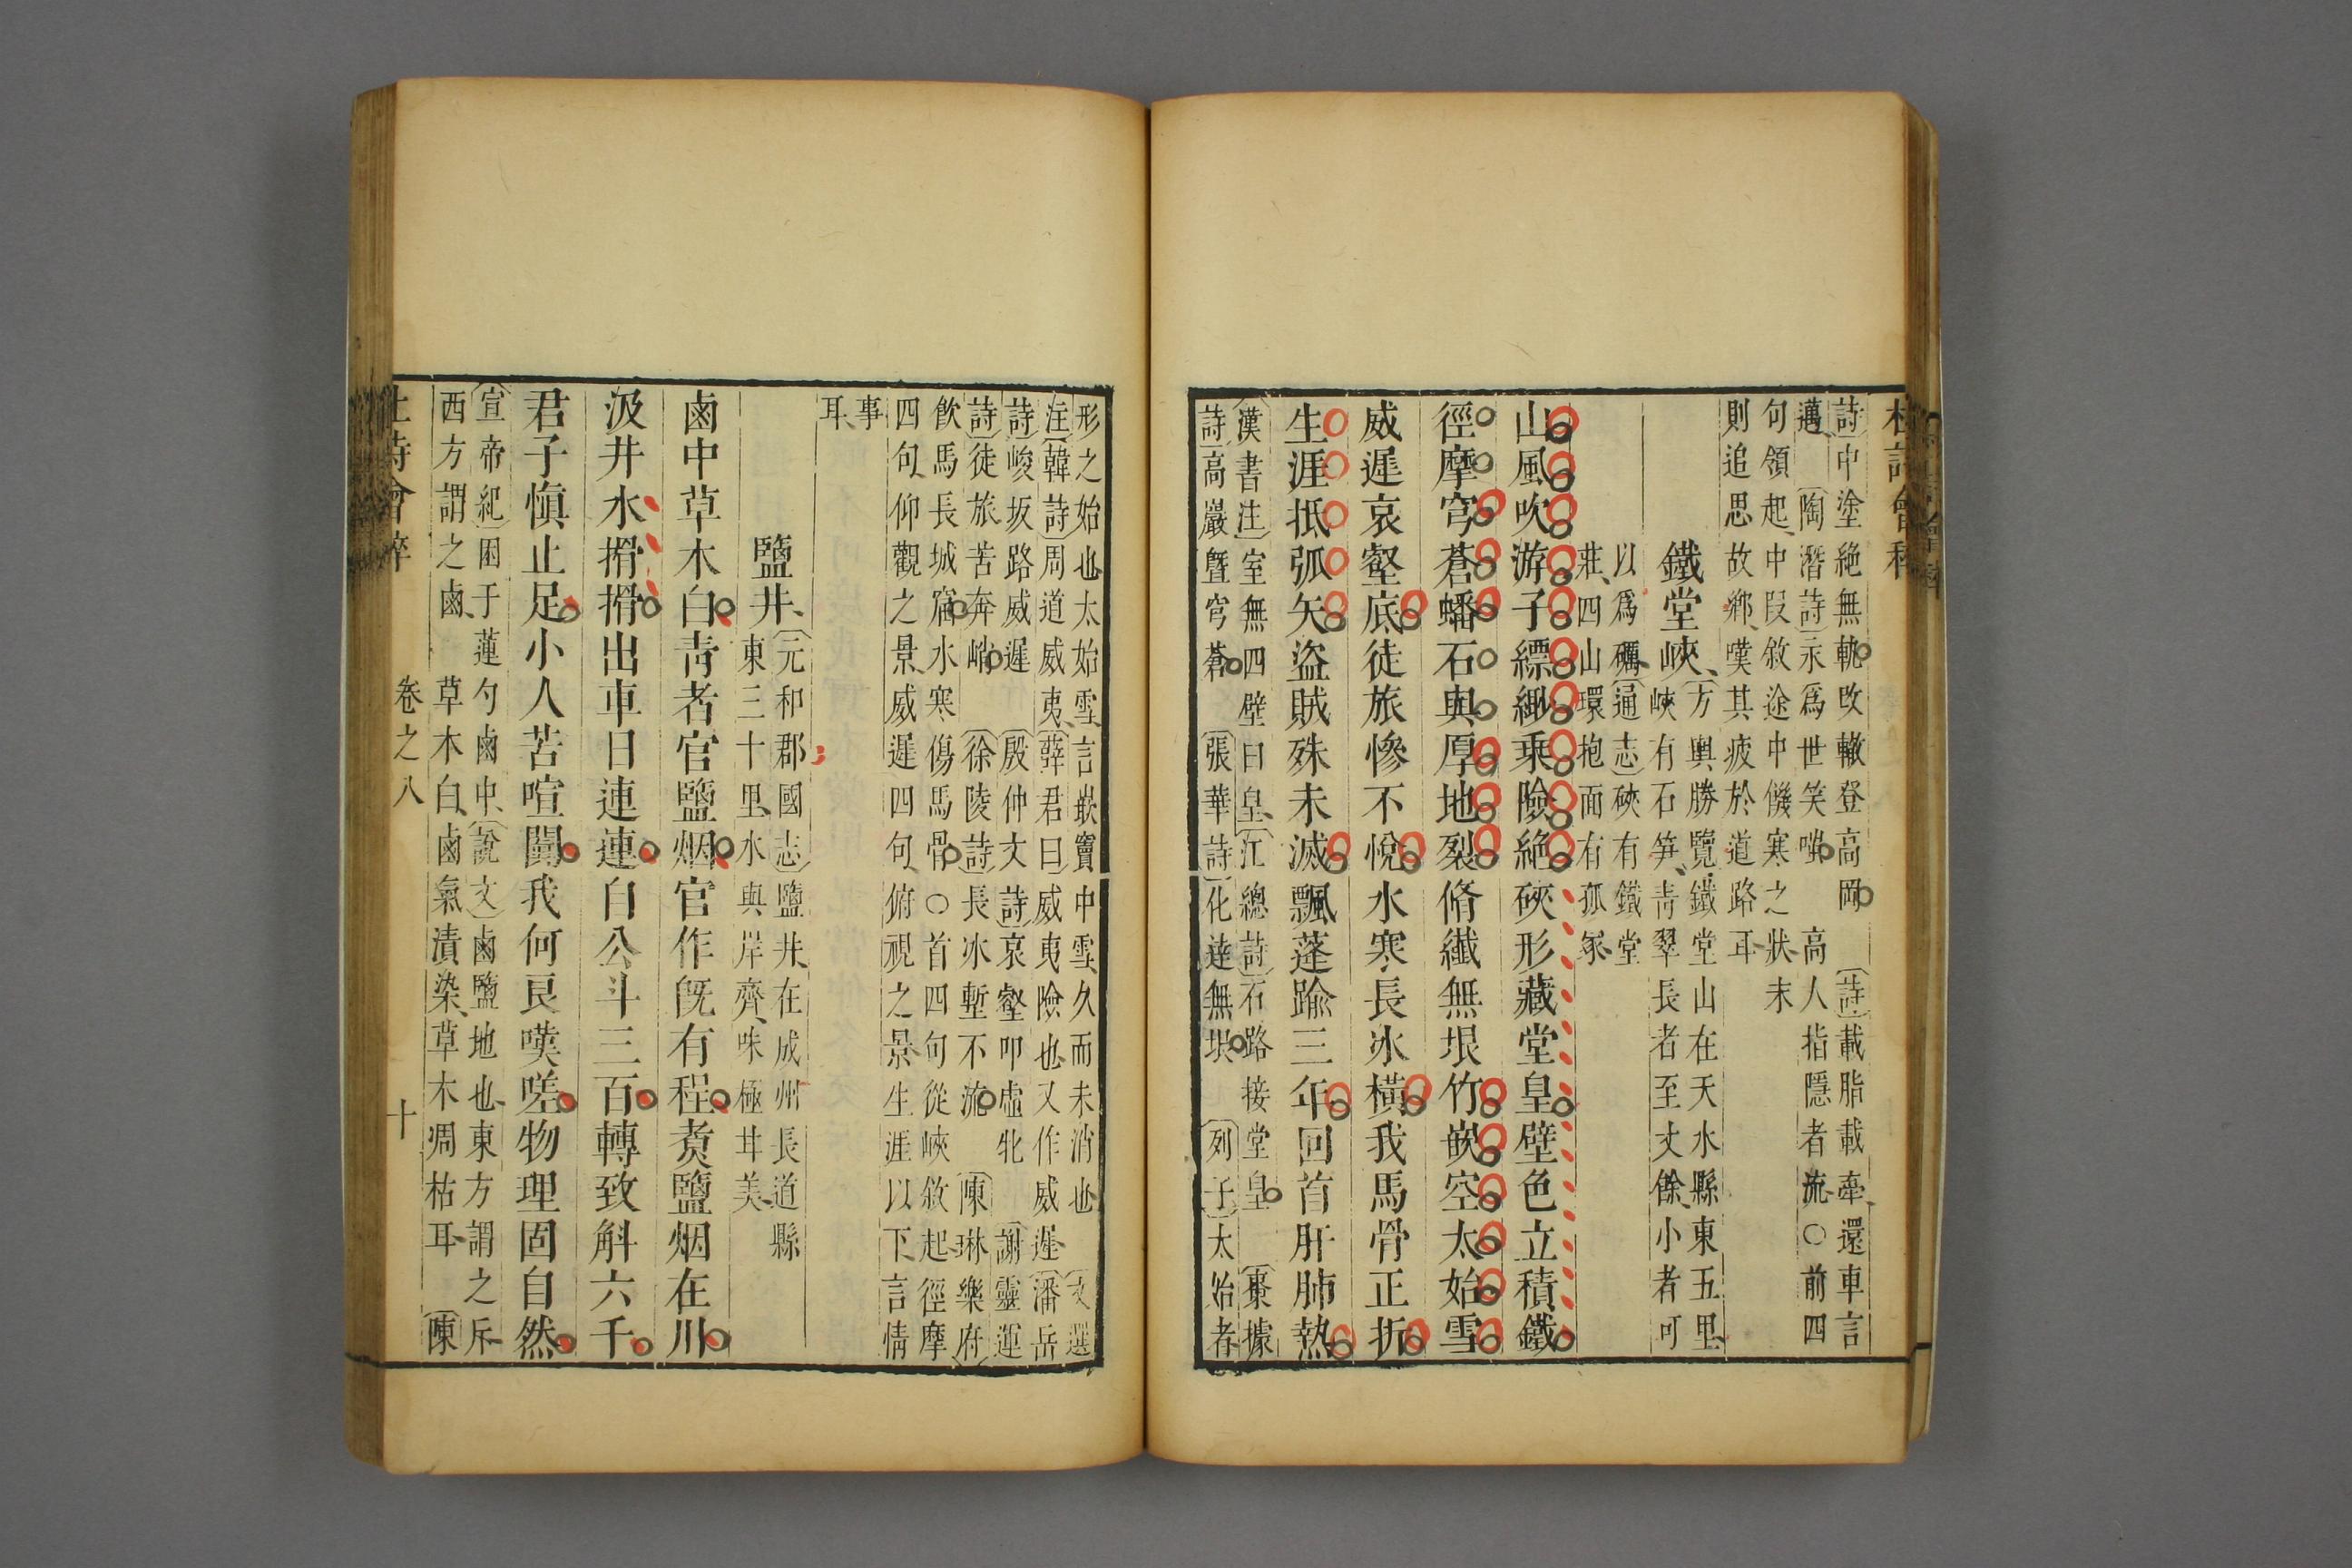 杜詩會稡
詩中塗絕無軌改轍登高岡詩載脂載牽還車言
邁陶潛詩永爲世笑嗤高人指隱者流○前四
句領起中段敘途中饑寒之狀末
則追思故鄉嘆其疲於道路耳
鐵堂峽
方輿勝覽鐵堂山在天水縣東五里
峽有石笋青翠長者至丈餘小者可
以爲礪通志硤有鐵堂
莊四山環抱面有孤冢
山風吹游子縹緲乗險絕硤形藏堂皇壁色立積鐵
徑摩穹蒼蟠石與厚地裂脩纎無垠竹嵌空太始雪
威遲哀壑底徒旅慘不悅水寒長冰橫我馬骨正折
生涯抵弧矢盜賊殊未滅飄蓬踰三年回首肝肺熱
漢書注室無四壁曰皇江總詩石路接堂皇棗據
詩高巖暨穹蒼張華詩化達無垠列子太始者
形之始也太始雪言嵌竇中雪久而未消也文選
注韓詩周道威夷薛君曰威夷險也又作威遲潘岳
詩峻坂路威遲殷仲文詩哀壑叩虛牝謝靈運
詩徒旅苦奔峭徐陵詩長冰塹不流陳琳樂府
飲馬長城窟水寒傷馬骨○首四句從峽敘起徑摩
四句仰觀之景威遲四句俯視之景生涯以下言情
事
耳
鹽井
元和郡國志鹽井在成州長道縣
東三十里水與岸齊味極甘美
鹵中草木白青者官鹽烟官作旣有程煑鹽烟在川
汲井水搰搰出車日連連自公斗三百轉致斛六千
君子愼止足小人苦喧闐我何良嘆嗟物理固自然
宣帝紀困于蓮勺鹵中說文鹵鹽地也東方謂之斥
西方謂之鹵草木白鹵氣漬染草木凋枯耳陳
卷之八
十